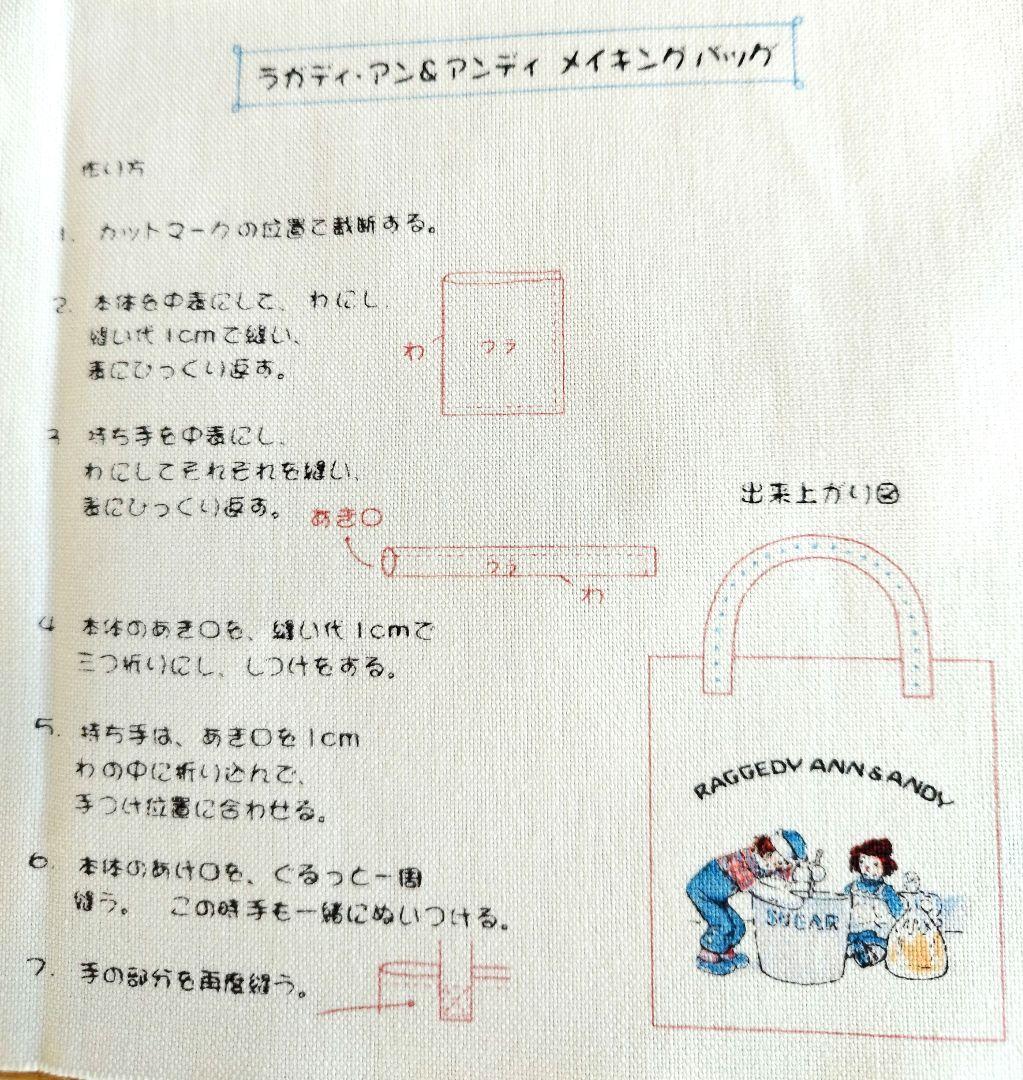 ラガディ・アン&アンディ メイキングバッグ
作り方
1. カットマークの位置で裁断する。
2. 本体を中表にして、わにし、
縫い代1cmで縫い、
表にひっくり返す。
わ
ウラ
3 持ち手を中表にし、
わにしてそれぞれを縫い、
表にひっくり返す。
あき口
ウラ
わ
4 本体のあき口を、縫い代1cmで
三つ折りにし、しつけをする。
5. 持ち手は、あき口を1cm
わの中に折り込んで、
手つけ位置に合わせる。
6. 本体のあけ口を、ぐるっと一周
縫う。 この時手も一緒にぬいつける。
7. 手の部分を再度縫う。
出来上がり図
RAGGEDY ANN & ANDY
SUGAR